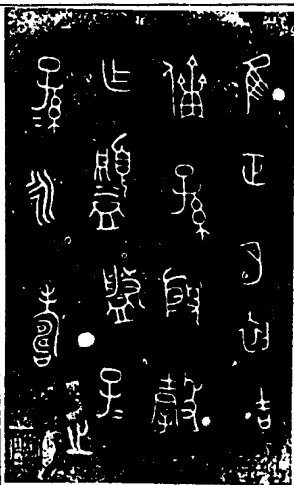 隹正月初吉
儔孫殷穀
乍盤子=
孫=永壽之